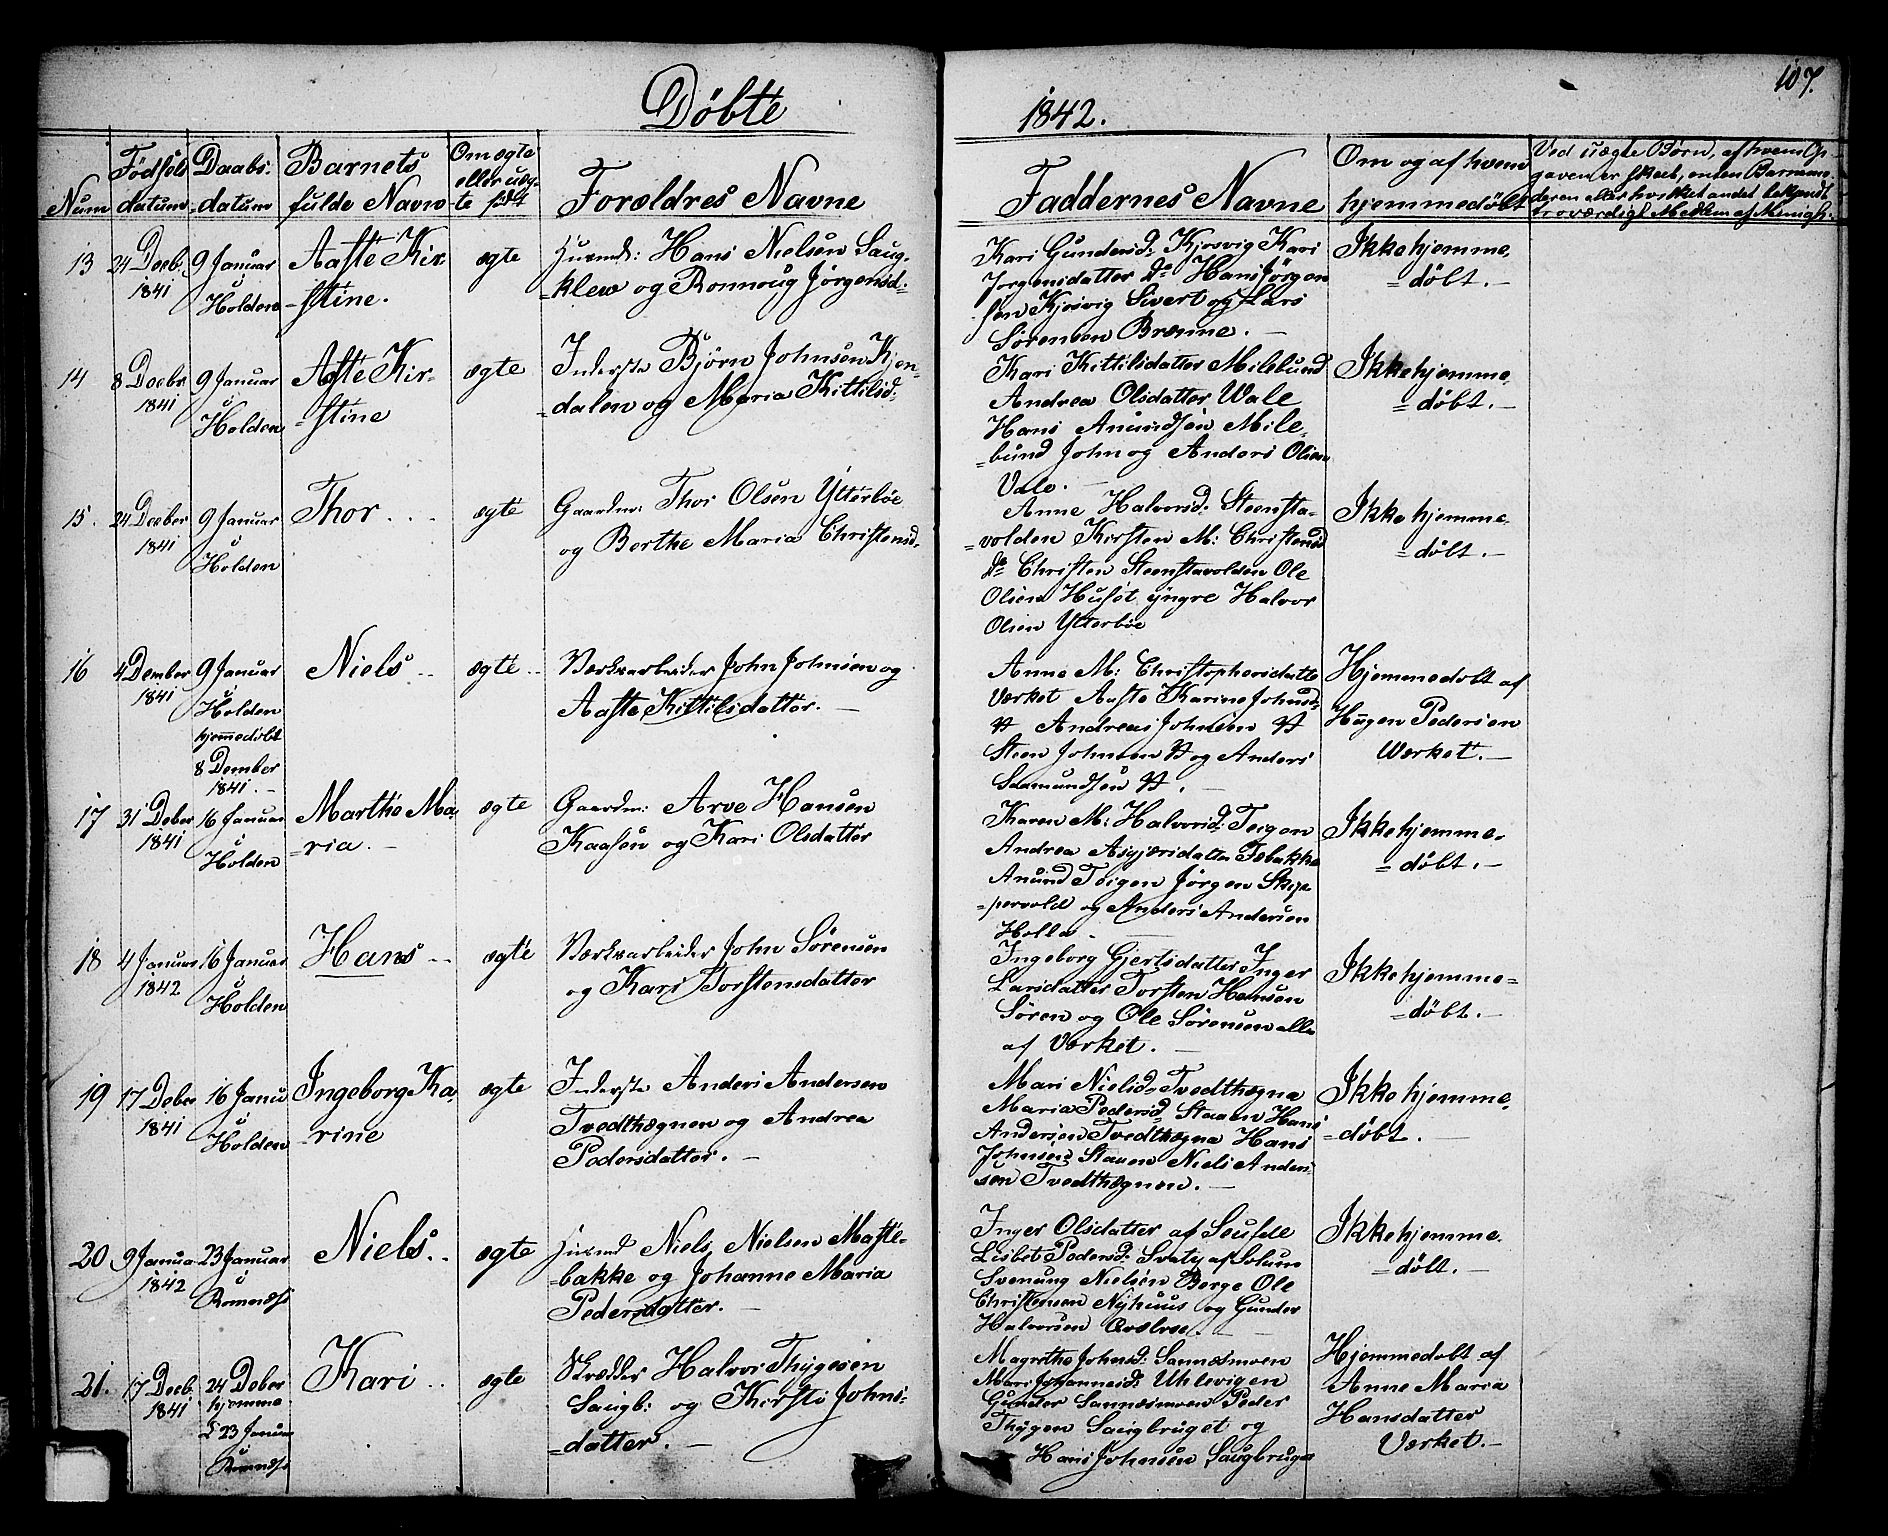 Døbte
1842.
107.
Num
Fødsels
datum
Daabs-
datum
Barnets
fulde Navn
Om ægte
eller uæg-
te født
Forældres Navne
Faddernes Navne
Om og af hvem
hjemmedøbt
Ved uægte Børn, af hvem Op-
gaven er skeet, enten Barnemo-
deren eller hvilket andet bekjendt
troværdigt Medlem af Menigh.
13
24 Decb.
1841
9 Januar
i
Holden
Aaste Kir-
stine.
ægte
Huusmd: Hans Nielsen Saug-
klew og Ronnoug Jørgensd.
Kari Gundersd: Kjosvig Kari
Jorgensdatter do Hans Jørgen
sen Kjosvig Sivert og Lars
Sorensen Brænne.
Ikke hjemme-
døbt.
14
8 Decbr
1841
9 Januar
i
Holden
Aaste Kir-
stine
ægte
Inderste Bjørn Johnsen Kjen-
dalen og Maria Kittilsd:
Kari Kittilsdatter Milebund
Andrea Olsdatter Wale
Hans Anundsen Mile-
bund John og Anders Olsen
Vale.
Ikke hjemme-
døbt.
15.
24 Decber
1841
9 Januar
i
Holden
Thor
ægte
Gaardm: Thor Olsen Ytterbøe
og Berthe Maria Christensd.
Anne Halvorsd: Steensta-
volden Kirsten M: Christensd
do Christen Steenstavolden Ole
Olsen Husøt yngre Halvor
Olsen Ytterbøe
Ikke hjemme-
døbt.
16
4 Dember
1841
9 Januar
i
Holden
hjemmedøbt
8 Dember
1841.
Niels
ægte
Værksarbeider John Johnsen og
Aaste Kittilsdatter.
Anne M: Christophersdatte
Værket Aaste Karine Johnsd
Andreas Johnsen
Steen Johnsen og Anders
Saamundsen
Hjemmedobt af
Hagen Pedersen
Værket.
17
31 Deber
1841
16 Januar
i
Holden
Marthe Ma-
ria.
ægte
Gaardm: Arve Hansen
Kaasen og Kari Olsdatter
Karen M: Halvorsd: Teigen
Andrea Asgjærsdatter
Anund Teigen Jørgen Skip-
pervold og Anders Andersen
Holla
Ikke hjemme-
døbt.
18
4 Januar
1842
16 Januar
i
Holden
Hans
ægte
Værksarbeider John Sørensen
og Kari Torstensdatter
Ingeborg Gjertsdatter Inger
Larsdatter Torsten Hansen
Søren og Ole Sørensen alle
af Værket.
Ikke hjemme-
døbt.
19
17 Deber
1841
16 Janu
i
Holden
Ingeborg Ka-
rine
ægte
Inderste Anders Andersen
Tvedthægnen og Andrea
Pedersdatter.
Mari Nielsd. Tvedthægna
Maria Pedersd. Staaen Hans
Andersen Tvedthægna Hans
Johnsen Staaen Niels Ander-
sen Tvedthægnen.
Ikke hjemme-
døbt.
20
9 Janua
1842
23 Januar
i
Romnæs
Niels
ægte
Huusmd Niels Nielsen Maste-
bakke og Johanne Maria
Pedersdatter.
Inger Olsdatter af Seufde
Lisbet Pedersd: Svaty af Solum
Svenung Nielsen Berge Ole
Christensen Nyhuus og Gunder
Halvorsen
Ikke hjemme-
døbt.
21.
17 Decb.
1841
24 Deber
hjemme
23 Januar
i Romnæs
Kari
ægte
Skrædder Halvor Thygesen
Saugb: og Kirsti Johns-
datter.
Magrethe Johnsd: Sannæsmoen
Mari Johannesd: Uhlevigen
Gunder Sannæsmoen Peder
Thygen Saugbruget og
Hans Johnsen Saugbruge
Hjemmedobt af
Anne Maria
Hansdatter
Værket.